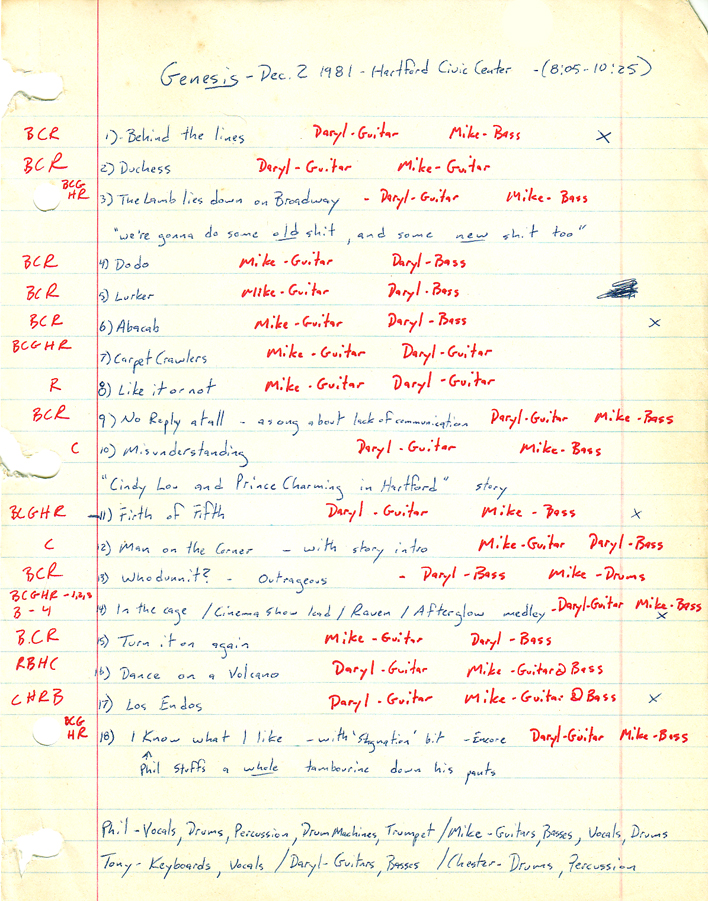 Genesis - Dec. 2 1981 - Hartford Civic Center - (8:05-10:25)
BCR 1) Behind the lines Daryl-Guitar Mike-Bass x
BCR 2) Duchess Daryl-Guitar Mike-Guitar
BCG
HR 3) The Lamb lies down on Broadway - Daryl-Guitar Mike-Bass
"we're gonna do some old shit, and some new shit too"
BCR 4) Dodo Mike-Guitar Daryl-Bass
BCR 5) Lurker Mike-Guitar Daryl-Bass
BCR 6) Abacab Mike-Guitar Daryl-Bass x
BCGHR 7) Carpet Crawlers Mike-Guitar Daryl-Guitar
R 8) Like it or not Mike-Guitar Daryl-Guitar
BCR 9) No Reply at all - a song about lack of communication Daryl-Guitar Mike-Bass
C 10) Misunderstanding Daryl-Guitar Mike-Bass
"Cindy Lou and Prince Charming in Hartford" story
BCGHR 11) Firth of Fifth Daryl-Guitar Mike-Bass x
C 12) Man on the Corner - with story intro Mike-Guitar Daryl-Bass
BCR 13) Whodunnit? - Outrageous - Daryl-Bass Mike-Drums
BCGHR-1,2,3
B-4 14) In the cage / Cinema Show lead / Raven / Afterglow medley - Daryl-Guitar Mike-Bass x
B.CR 15) Turn it on again Mike-Guitar Daryl-Bass
RBHC 16) Dance on a Volcano Daryl-Guitar Mike-Guitar @ Bass
CHRB 17) Los Endos Daryl-Guitar Mike-Guitar @ Bass x
BCG
HR 18) I Know what I like - with 'Stagnation' bit - Encore Daryl-Guitar Mike-Bass
Phil stuffs a whole tambourine down his pants
Phil-Vocals, Drums, Percussion, Drum Machines, Trumpet / Mike-Guitars, Basses, Vocals, Drums
Tony-Keyboards, Vocals / Daryl-Guitars, Basses / Chester-Drums, Percussion